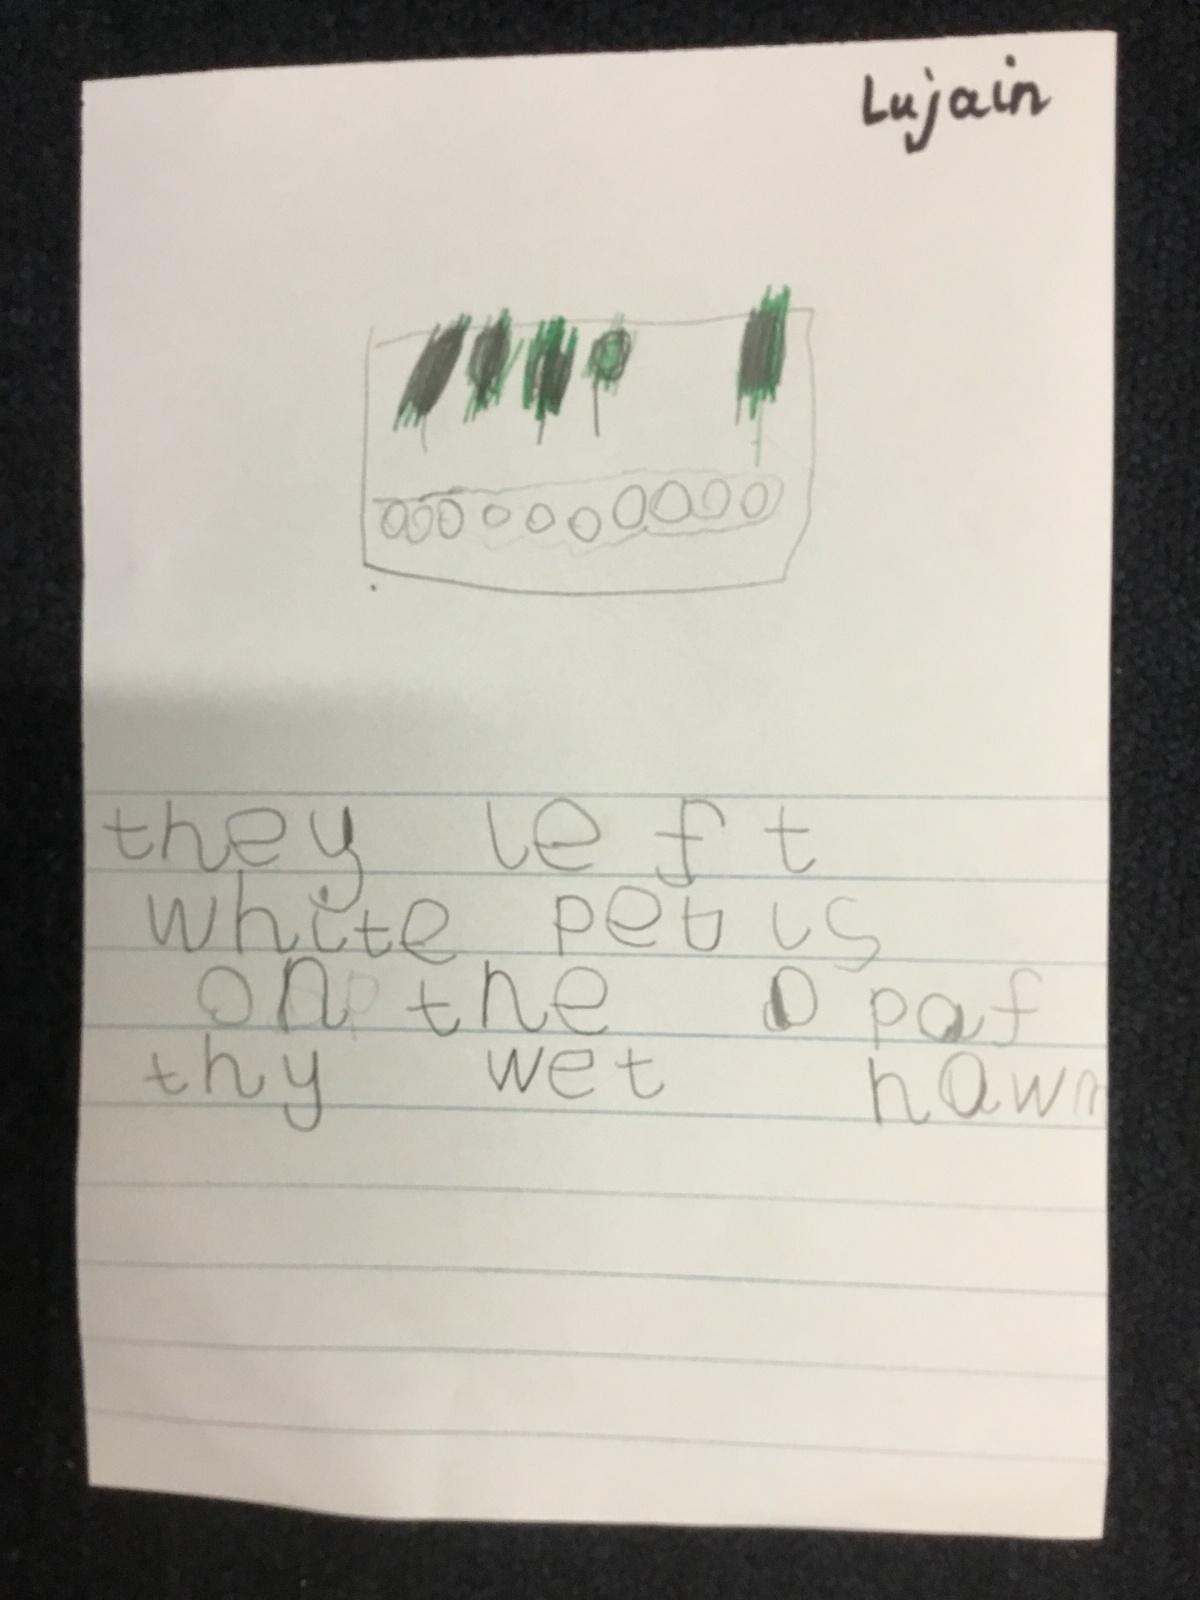 Lujain
they left
white petis
on the paf
thy wet hawn